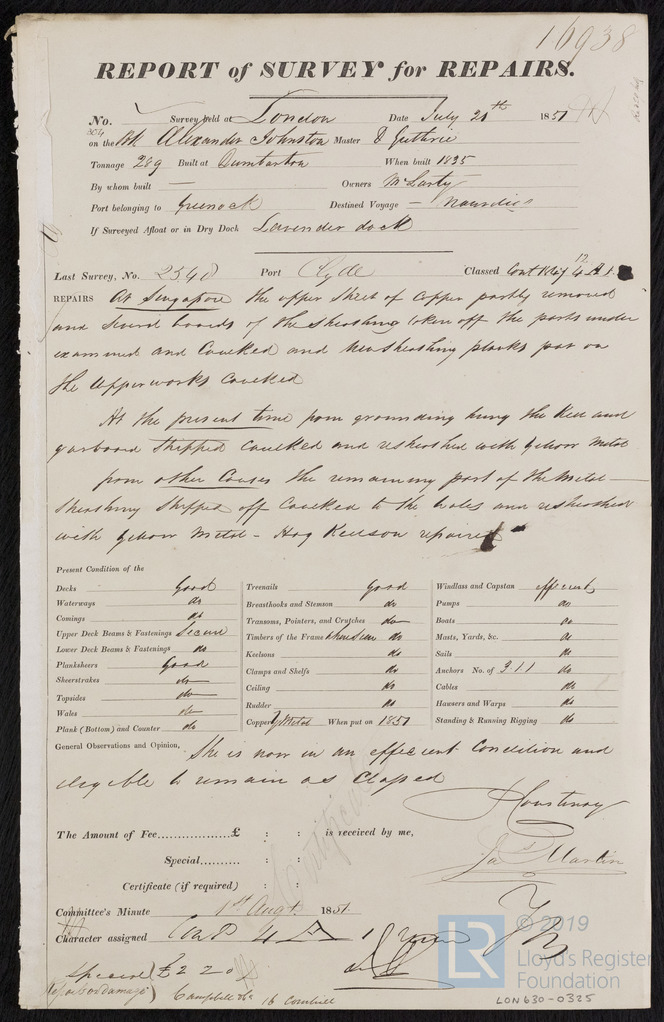 16938
REPORT of SURVEY for REPAIRS.
No. Survey held at London Date July 21th 1851
on the Bk Alexander Johnston Master D Guthrie
Tonnage 289 Built at Dumbarton When built 1835
By whom built — Owners McLarty
Port belonging to Greenock Destined Voyage — Mauritius
If Surveyed Afloat or in Dry Dock Lavender dock
Last Survey, No. 2340 Port Clyde Classed Contd 4 A 1
REPAIRS At Singapore the upper Street of Copper partly removed
and several boards of the sheathing taken off the parts under
examined and Caulked and New Sheathing planks put on
the Upperworks Caulked
At the present time from grounding hung the Keel and
garboard Stripped Caulked and resheathed with yellow Metal
from other Causes the remaining part of the Metal
sheathing stripped off Caulked to the Wales and resheathed
with yellow Metal - Hog Keelson repaired
Present Condition of the
Decks Good
Waterways do
Comings do
Upper Deck Beams & Fastenings Secure
Lower Deck Beams & Fastenings do
Planksheers Good
Sheerstrakes do
Topsides do
Wales do
Plank (Bottom) and Counter do
Treenails Good
Breasthooks and Stemson do
Transoms, Pointers, and Crutches do
Timbers of the Frame where seen do
Keelsons do
Clamps and Shelfs do
Ceiling do
Rudder do
Copper Y Metal When put on 1851
Windlass and Capstan efficient
Pumps do
Boats do
Masts, Yards, &c. do
Sails do
Anchors No. of 3.1.1 do
Cables do
Hawsers and Warps do
Standing & Running Rigging do
General Observations and Opinion, She is now in an efficient Condition and
eligible to remain as Classed
The Amount of Fee.................£ : : is received by me,
Special.......... : :
Jas Martin
Certificate (if required) : :
Committee's Minute 1st Augt. 1851
Character assigned Contd 4 A 1
Special £2 2 0
Report for damage) Campbell & Co 16 Cornhill
LR © 2019
Lloyd's Register
Foundation
LON630-0325